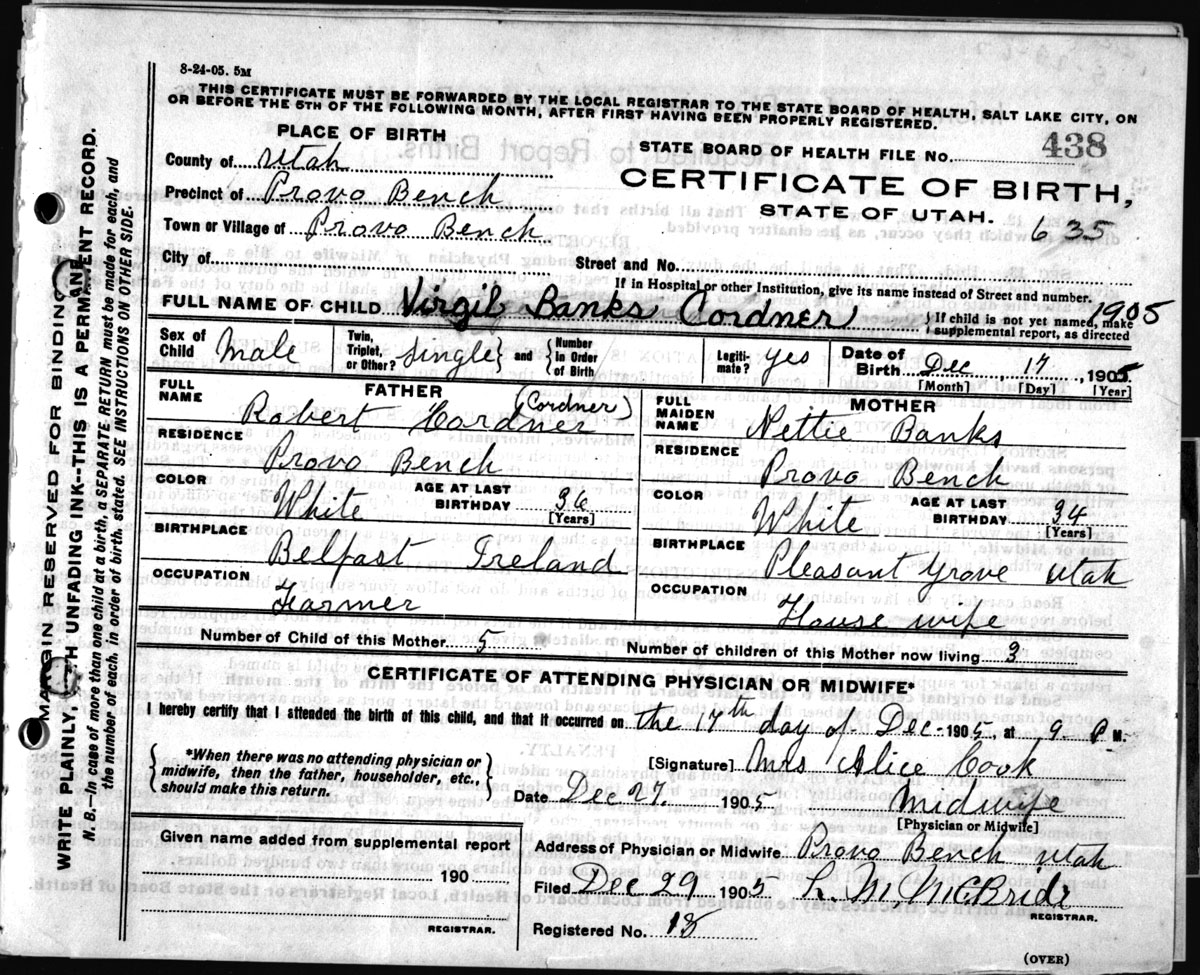 8-24-05. 5M
THIS CERTIFICATE MUST BE FORWARDED BY THE LOCAL REGISTRAR TO THE STATE BOARD OF HEALTH, SALT LAKE CITY, ON
OR BEFORE THE 5TH OF THE FOLLOWING MONTH, AFTER FIRST HAVING BEEN PROPERLY REGISTERED.
PLACE OF BIRTH
STATE BOARD OF HEALTH FILE NO. 438
County of Utah
CERTIFICATE OF BIRTH,
Precinct of Provo Bench
STATE OF UTAH.
Town or Village of Provo Bench
635
City of
Street and No.
If in Hospital or other Institution, give its name instead of Street and number.
1905
FULL NAME OF CHILD Virgil Banks Cordner
{If child is not yet named, make
supplemental report, as directed
Sex of Child Male
Twin, Triplet, or Other? Single} and {Number in Order of Birth
Legitimate? yes
Date of Birth Dec, 17, 1905
[Month] [Day] [Year]
FATHER
FULL NAME Robert Hardner (Cordner)
RESIDENCE
Provo Bench
COLOR White
AGE AT LAST BIRTHDAY 36
[Years]
BIRTHPLACE
Belfast Ireland
OCCUPATION
Farmer
MOTHER
FULL MAIDEN NAME Nettie Banks
RESIDENCE
Provo Bench
COLOR White
AGE AT LAST BIRTHDAY 34
[Years]
BIRTHPLACE
Pleasant Grove Utah
OCCUPATION
House wife
Number of Child of this Mother 5
Number of children of this Mother now living 3
CERTIFICATE OF ATTENDING PHYSICIAN OR MIDWIFE*
I hereby certify that I attended the birth of this child, and that it occurred on the 17th day of Dec 1905, at 9 P M.
{*When there was no attending physician or
midwife, then the father, householder, etc.,
should make this return.}
[Signature] Mrs Alice Cook
Date Dec 27. 1905 Midwife
[Physician or Midwife]
Given name added from supplemental report
190
REGISTRAR.
Address of Physician or Midwife Provo Bench Utah
Filed Dec 29 1905 L. M. McBride
REGISTRAR.
Registered No. 18
(OVER)
MARGIN RESERVED FOR BINDING
WRITE PLAINLY, WITH UNFADING INK--THIS IS A PERMANENT RECORD.
N. B.—In case of more than one child at a birth, a SEPARATE RETURN must be made for each, and
the number of each, in order of birth, stated. SEE INSTRUCTIONS ON OTHER SIDE.